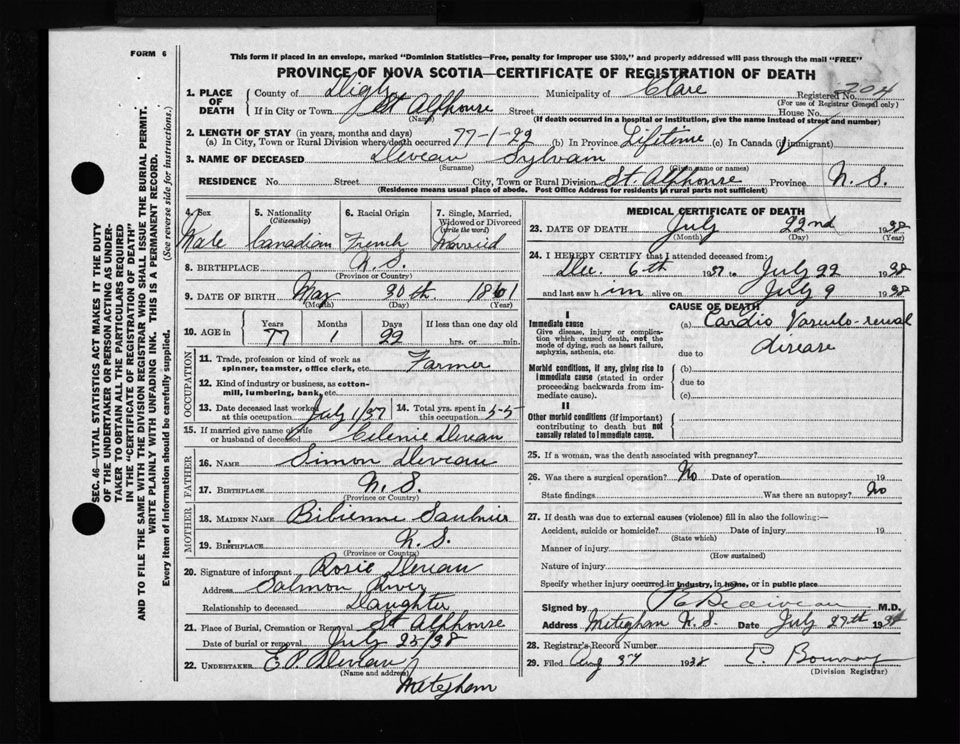 FORM 6
This form if placed in an envelope, marked "Dominion Statistics—Free, penalty for improper use $300," and properly addressed will pass through the mail "FREE"
PROVINCE OF NOVA SCOTIA—CERTIFICATE OF REGISTRATION OF DEATH
SEC. 46—VITAL STATISTICS ACT MAKES IT THE DUTY
OF THE UNDERTAKER OR PERSON ACTING AS UNDER-
TAKER TO OBTAIN ALL THE PARTICULARS REQUIRED
IN THE "CERTIFICATE OF REGISTRATION OF DEATH"
AND TO FILE THE SAME WITH THE DIVISION REGISTRAR WHO SHALL ISSUE THE BURIAL PERMIT.
WRITE PLAINLY WITH UNFADING INK. THIS IS A PERMANENT RECORD.
Every item of information should be carefully supplied. (See reverse side for instructions.)
1. PLACE OF DEATH County of Digby Municipality of Clare Registered No. 204
(For use of Registrar General only)
If in City or Town St Alphonse Street House No.
(Name) (If death occurred in a hospital or institution, give the name instead of street and number)
2. LENGTH OF STAY (in years, months and days)
(a) In City, Town or Rural Division where death occurred 77-1-22 (b) In Province Lifetime (c) In Canada (if immigrant)
3. NAME OF DECEASED Deveau Sylvain
(Surname) (Given name or names)
RESIDENCE No. Street City, Town or Rural Division St. Alphonse Province N. S.
(Residence means usual place of abode. Post Office Address for residents in rural parts not sufficient)
4. Sex 5. Nationality 6. Racial Origin 7. Single, Married,
(Citizenship) Widowed or Divorced
(write the word)
Male Canadian French Married
8. BIRTHPLACE N. S.
(Province or Country)
9. DATE OF BIRTH May 30th. 1861
(Month) (Day) (Year)
10. AGE in Years Months Days If less than one day old
77 1 22 hrs. or min.
OCCUPATION
11. Trade, profession or kind of work as
spinner, teamster, office clerk, etc. Farmer
12. Kind of industry or business, as cotton-
mill, lumbering, bank, etc.
13. Date deceased last worked at this occupation July 1/37 14. Total yrs. spent in this occupation 55
15. If married give name of wife
or husband of deceased Celenie Deveau
FATHER
16. NAME Simon Deveau
17. BIRTHPLACE N. S.
(Province or Country)
MOTHER
18. MAIDEN NAME Bibienne Saulnier
19. BIRTHPLACE N. S.
(Province or Country)
20. Signature of informant Rosie Deveau
Address Salmon River
Relationship to deceased Daughter
21. Place of Burial, Cremation or Removal St Alphonse
Date of burial or removal July 25/38
22. UNDERTAKER E P Deveau
(Name and address)
Meteghan
MEDICAL CERTIFICATE OF DEATH
23. DATE OF DEATH July 22nd 1938
(Month) (Day) (Year)
24. I HEREBY CERTIFY that I attended deceased from:
Dec. 6th 1937 to July 22 1938
and last saw him alive on July 9 1938
CAUSE OF DEATH
I
Immediate cause
Give disease, injury or complica-
tion which caused death, not the
mode of dying, such as heart failure,
asphyxia, asthenia, etc.
(a) Cardio Vasculo-renal
due to disease
Morbid conditions, if any, giving rise to
Immediate cause (stated in order
proceeding backwards from im-
mediate cause).
(b)
due to
(c)
II
Other morbid conditions (if important)
contributing to death but not
causally related to Immediate cause.
25. If a woman, was the death associated with pregnancy?
26. Was there a surgical operation? No Date of operation 19
State findings Was there an autopsy? No
27. If death was due to external causes (violence) fill in also the following:—
Accident, suicide or homicide? Date of injury 19
(State which)
Manner of injury
(How sustained)
Nature of injury
Specify whether injury occurred in industry, in home, or in public place
Signed by Belliveau M.D.
Address Meteghan N. S. Date July 27th 19
28. Registrar's Record Number
29. Filed Aug 1938
(Division Registrar)